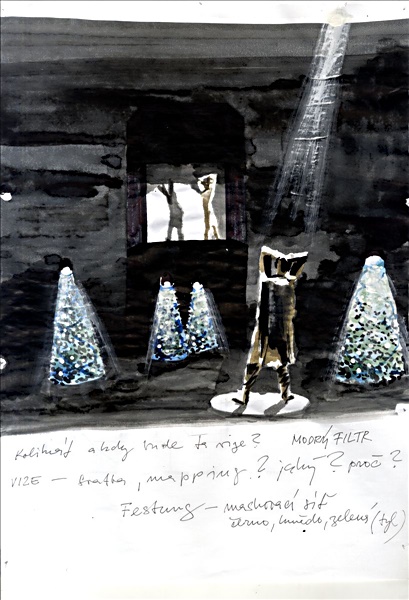 Kolikrát a kdy bude ta vize? MODRÝ FILTR
VIZE — mapping? jaký? proč?
Festung — maskovací síť
černo, hnědo, zelená (tyl)